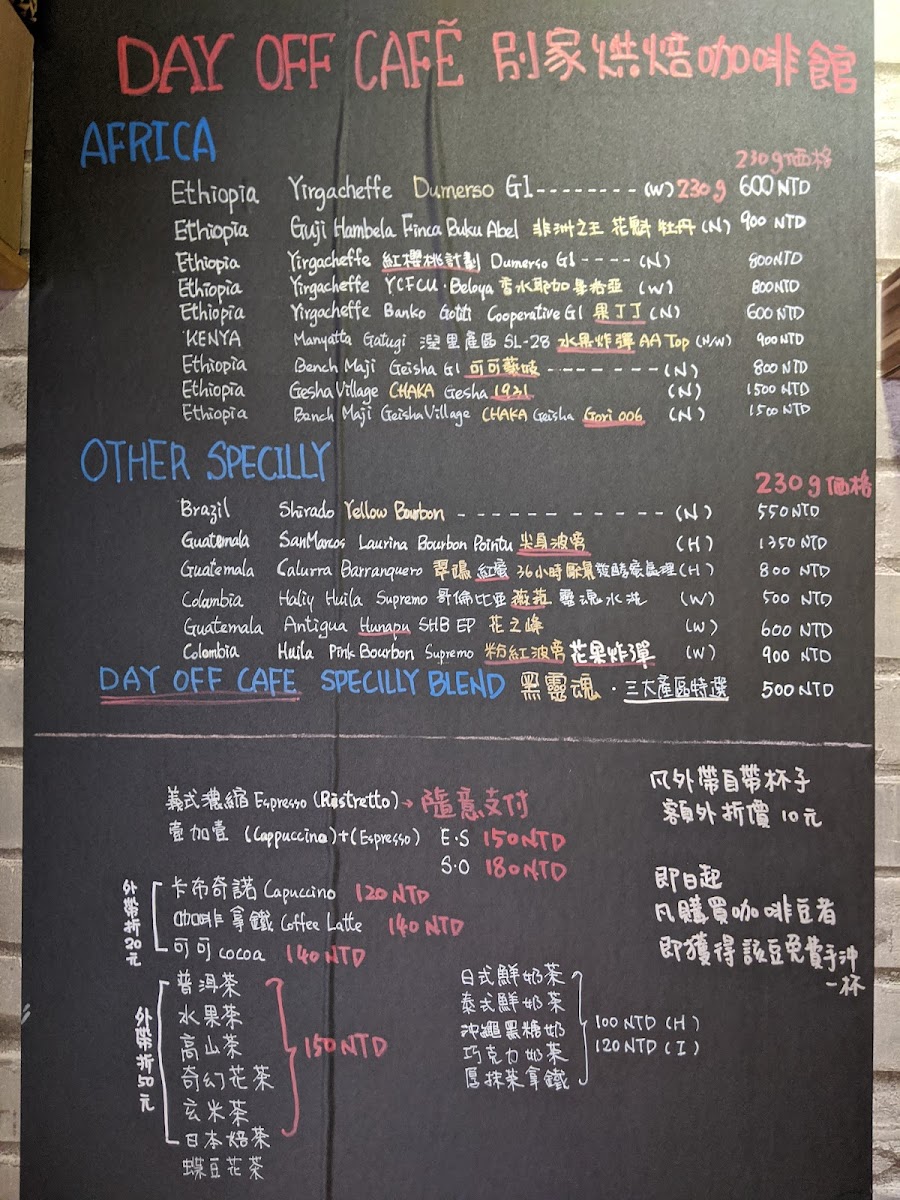 DAY OFF CAFÉ 別家烘焙咖啡館
AFRICA
230g価格
Ethiopia Yirgacheffe Dumerso G1-------- (W) 230g 600NTD
Ethiopia Guji Hambela Finca Buku Abel 非洲之王 花魁 牡丹 (N) 900 NTD
Ethiopia Yirgacheffe 紅櫻桃計劃 Dumerso G1 ---- (N) 800NTD
Ethiopia Yirgacheffe YCFCU·Beloya 香水耶加 (W) 800NTD
Ethiopia Yirgacheffe Banko Gotiti Cooperative G1 果丁丁 (N) 600 NTD
KENYA Manyatta Gatugi 涅里產區 SL-28 水果炸彈 AA Top (N/W) 900NTD
Ethiopia Bench Maji Geisha G1 可可藝妓 -------- (N) 800 NTD
Ethiopia Gesha Village CHAKA Gesha 1931 (N) 1500 NTD
Ethiopia Banch Maji Geisha Village CHAKA Geisha Gori 006 (N) 1500 NTD
OTHER SPECILLY
230g価格
Brazil Shirado Yellow Bourbon ------------ (N) 550NTD
Guatemala SanMarcos Laurina Bourbon Pointu 尖身波旁 (H) 1350 NTD
Guatemala Calurra Barranquero 翠鴞 紅蜜 36小時 厭氧發酵蜜處理 (H) 800 NTD
Colambia Haliy Huila Supremo 哥倫比亞 薇薇 靈魂水洗 (W) 500 NTD
Guatemala Antigua Hunapu SHB EP 花之峰 (W) 600 NTD
Colombia Huila Pink Bourbon Supremo 粉紅波旁 花果炸彈 (W) 900 NTD
DAY OFF CAFE SPECILLY BLEND 黑靈魂 · 三大產區特選 500NTD
義式濃縮 Espresso (Ristretto)→ 隨意支付
壹加壹 (Cappuccino)+(Espresso) E.S 150NTD
S.O 180NTD
外帶折20元
卡布奇諾 Capuccino 120NTD
咖啡拿鐵 Coffee Latte 140NTD
可可 cocoa 140NTD
外帶折50元
普洱茶
水果茶
高山茶
奇幻花茶
玄米茶
日本焙茶
蝶豆花茶
150NTD
日式鮮奶茶
泰式鮮奶茶
沖繩黑糖奶
巧克力奶茶
厚抹茶拿鐵
100 NTD (H)
120NTD (I)
凡外帶自帶杯子
額外折價10元
即日起
凡購買咖啡豆者
即獲得該豆免費手沖
一杯